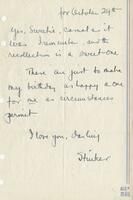 for October 29th
Yes, Sweetie,
it was I remember, and the
recollection is a sweet one
These are just to make
my birthday as happy a one
for me as circumstances
permit
I love you, darling